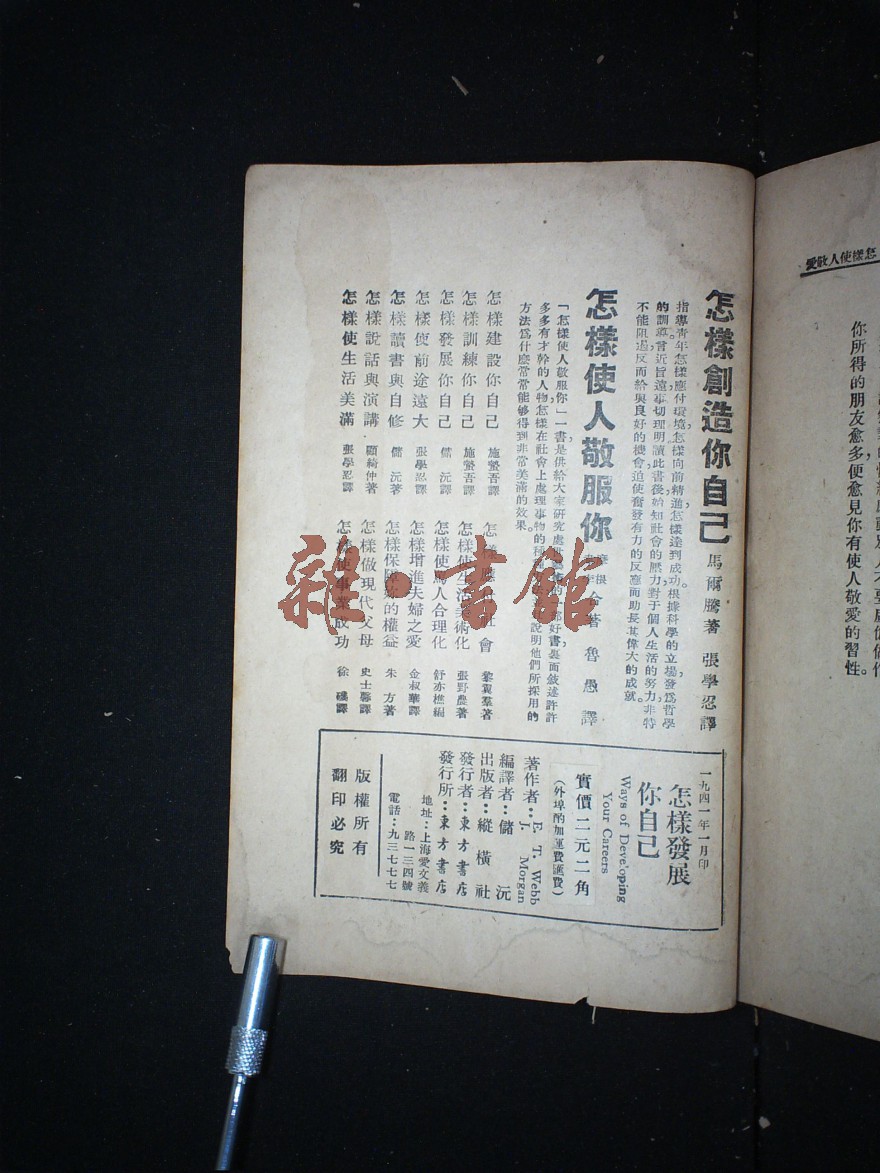 怎樣使人敬愛
你所得的朋友愈多便愈見你有使人敬愛的習性。
怎樣創造你自己 馬爾騰著 張學忍譯
指導青年怎樣應付環境,怎樣向前精進,怎樣達到成功。根據科學的立場,發爲哲學
的訓導,言近旨遠,事切理明,讀此書後,始知社會的壓力,對于個人生活的努力,非特
不能阻遏,反而給與良好的機會,迫使奮發有力的反應而助長其偉大的成就。
怎樣使人敬服你 合著 魯愚譯
「怎樣使人敬服你」一書,是供給大家研究處世 好書,裏面敘述許許
多多有才幹的人物,怎樣在社會上處理事物的種 說明他們所採用的
方法爲什麼常常能够得到非常美滿的效果。
怎樣建設你自己 施螫吾譯
怎樣訓練你自己 施螫吾譯
怎樣發展你自己 儲沅譯
怎樣使前途遠大 張學忍譯
怎樣讀書與自修 儲沅著
怎樣說話與演講 顧綺仲著
怎樣使生活美滿 張學忍譯
社會 黎翼羣著
怎樣使生活美術化 張野農著
怎樣使 人合理化 舒亦樵編
怎樣增進夫婦之愛 金叔華譯
怎樣保障 的權益 朱方著
怎樣做現代父母 史士馨譯
怎樣使事業成功 徐 譯
一九四一年一月印
怎樣發展
你自己
Ways of Developing
Your Careers
實價二元二角
(外埠酌加運費匯費)
著作者:E. T. Webb
J. Morgan
編譯者:儲沅
出版者:縱橫社
發行者:東方書店
發行所:東方書店
地址:上海愛文義
路一三四號
電話:九三七七七
版權所有
翻印必究
雜·書館